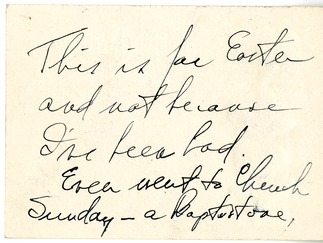 This is for Easter
and not because
I've been bad.
Even went to Church
Sunday – a Baptist one,